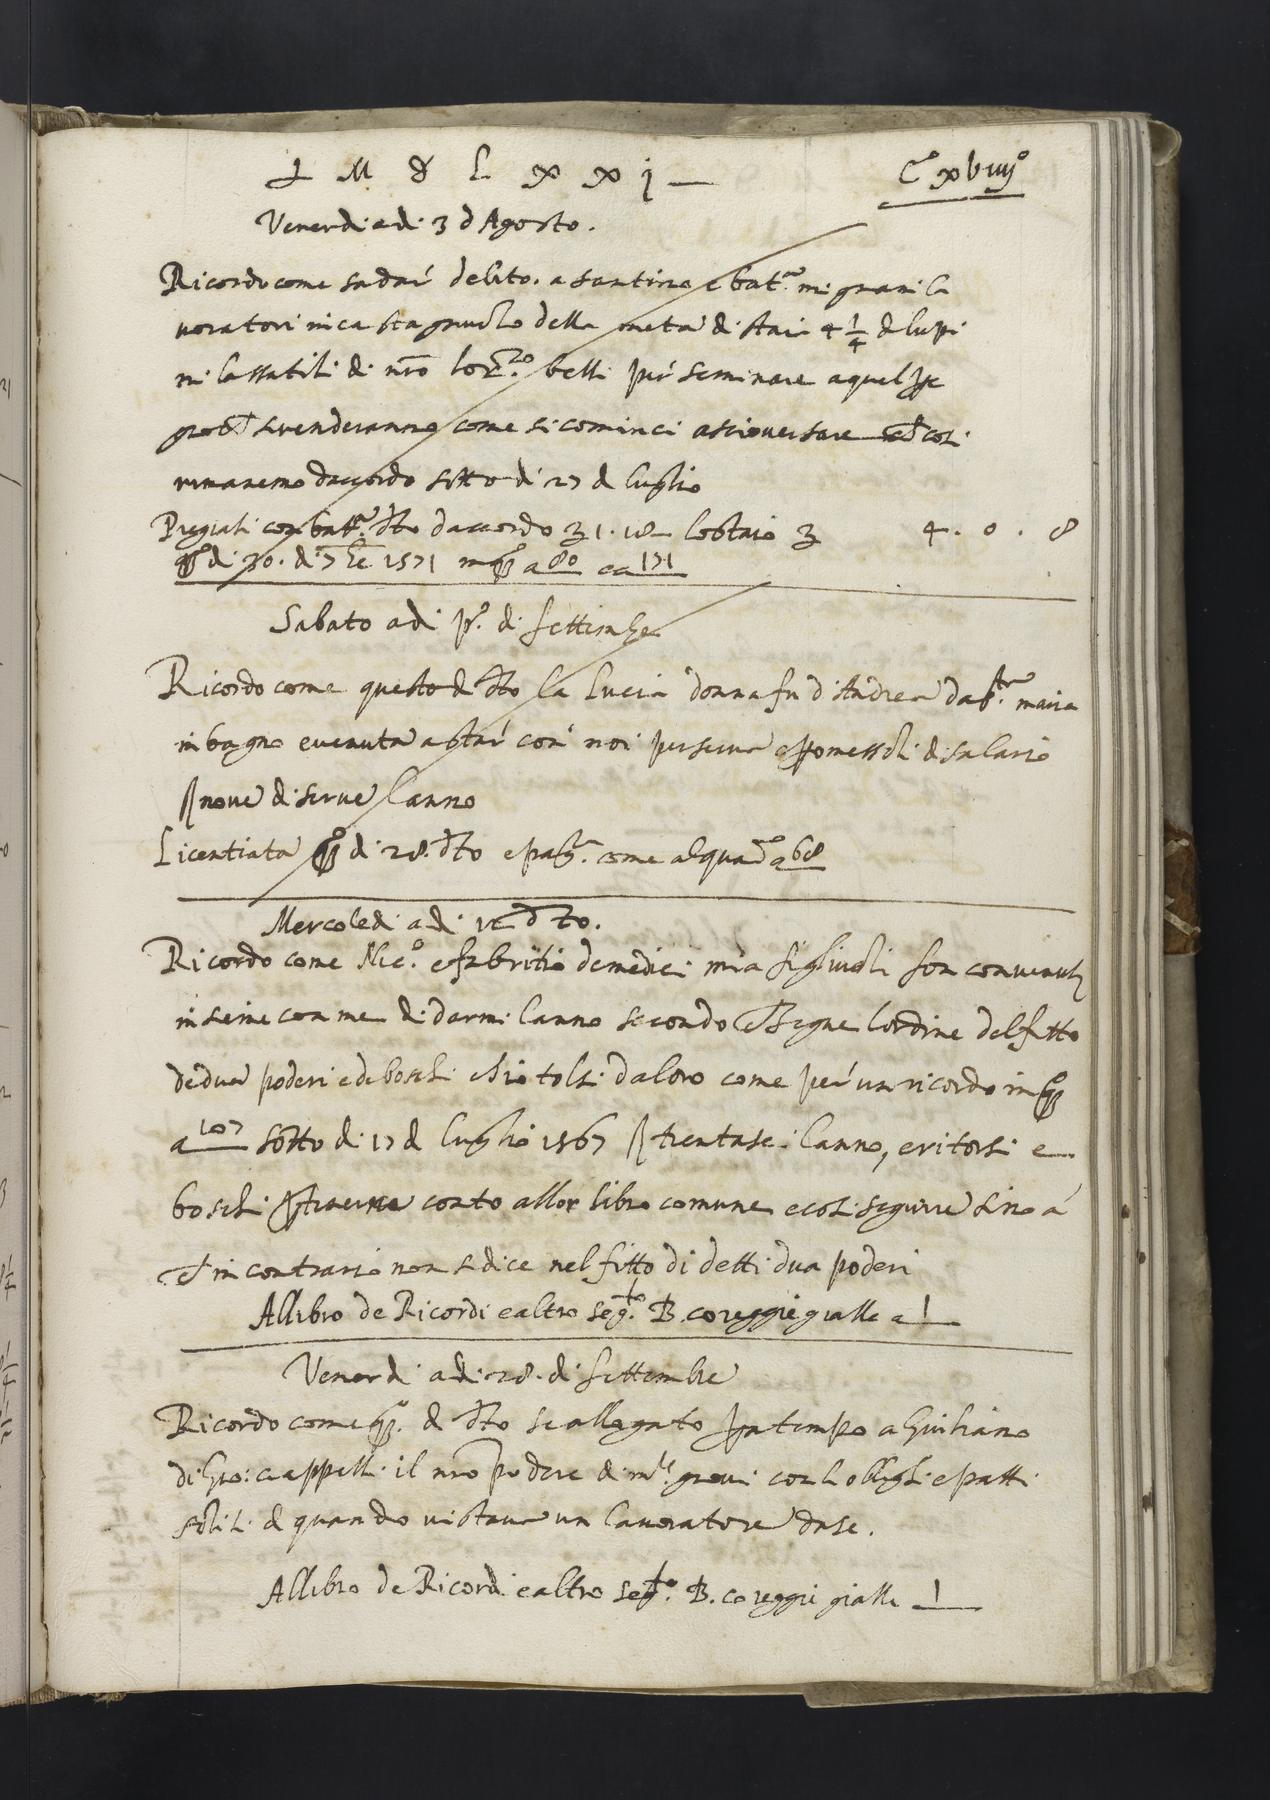 ✝ M D L x x j
Cº xbiiijº
Venerdi adi 3 d Agosto.
Ricordo come sadare debito. a santino e batª. mignani la
voratori in castagnuolo della meta di staia 4 1/4 d lupi
ni lassatili di nrō lorzº. belli per seminare a quel
si renderanno come si cominci a
rimanemo daccordo sotto di 27 d luglio
Pregiati con battª. dto daccordo 1. 18 lo staio 4. 0. 8
di 30. di 7bre 1571 in a 80 ca 171
Sabato adi pº. di settembre
Ricordo come questo d dto la lucia donna fu d'Andrea da maria
in bagno e venuta a star con noi per serva e promessoli di salario
nove di serve l'anno
Licentiata di 28. dto e pagª. come al quadº a 68
Mercoledi adi dto.
Ricordo come Nicº. e fabritio de medici mia figliuoli son convenuti
insieme con me di darmi l'anno secondo segue l'ordine del fitto
de dua poderi e de boschi ch'io tolsi da loro come per un ricordo in
a 107 sotto di 17 d luglio 1567 trentasei l'anno, e ritorsi e
boschi conto allor libro comune e cosi seguire sino a
in contrario non si dice nel fitto di detti dua poderi
Allibro de Ricordi e altro segto. B. coreggie gialle a 1
Venerdi adi 28. di settembre
Ricordo come d dto se allogato a tempo a Giuliano
di Gio: ciappelli il nrō podere di con li oblighi e patti
soliti d quando vi stava un lavoratore da se.
Allibro de Ricordi e altro segto. B. coreggie gialle 1